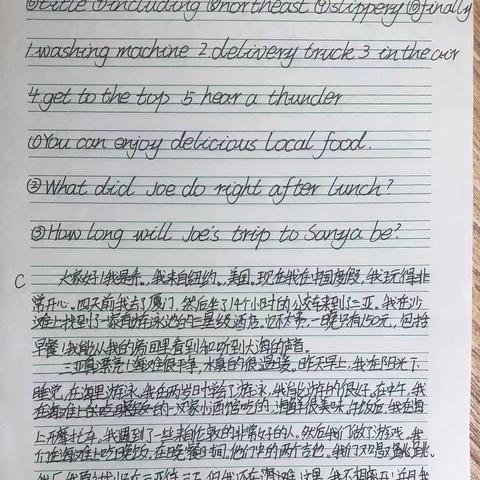 ①title ②including ③northeast ④slippery ⑤finally
1.washing machine 2 delivery truck 3 in the air
4.get to the top 5 hear a thunder
①You can enjoy delicious local food.
②What did Joe do right after lunch?
③How long will Joe's trip to Sanya be?
C 大家好!我是乔。我来自纽约。美国。现在我在中国度假,我玩得非
常开心。四天前我去了厦门,然后坐了14个小时的公交车来到三亚。我在沙
滩上找到了一家有游泳池的三星级酒店。它不贵,一晚只有150元,包括
早餐!我能从我的房间里看到和听到大海的声音。
三亚真漂亮!海滩很干净,水真的很温暖。昨天早上,我在阳光下
睡觉,在海里游泳。我在两岁时学会了游泳,我自此游的很好。在中午,我
在海滩上的一家小酒馆吃的,海鲜很美味。午饭后,我在海
上开摩托车。我遇到了一些来自伦敦的非常好的人。然后我们做了游戏。我
们在海滩上吃晚饭,在晚餐时间,他们中的两个吉他。我们又唱又跳